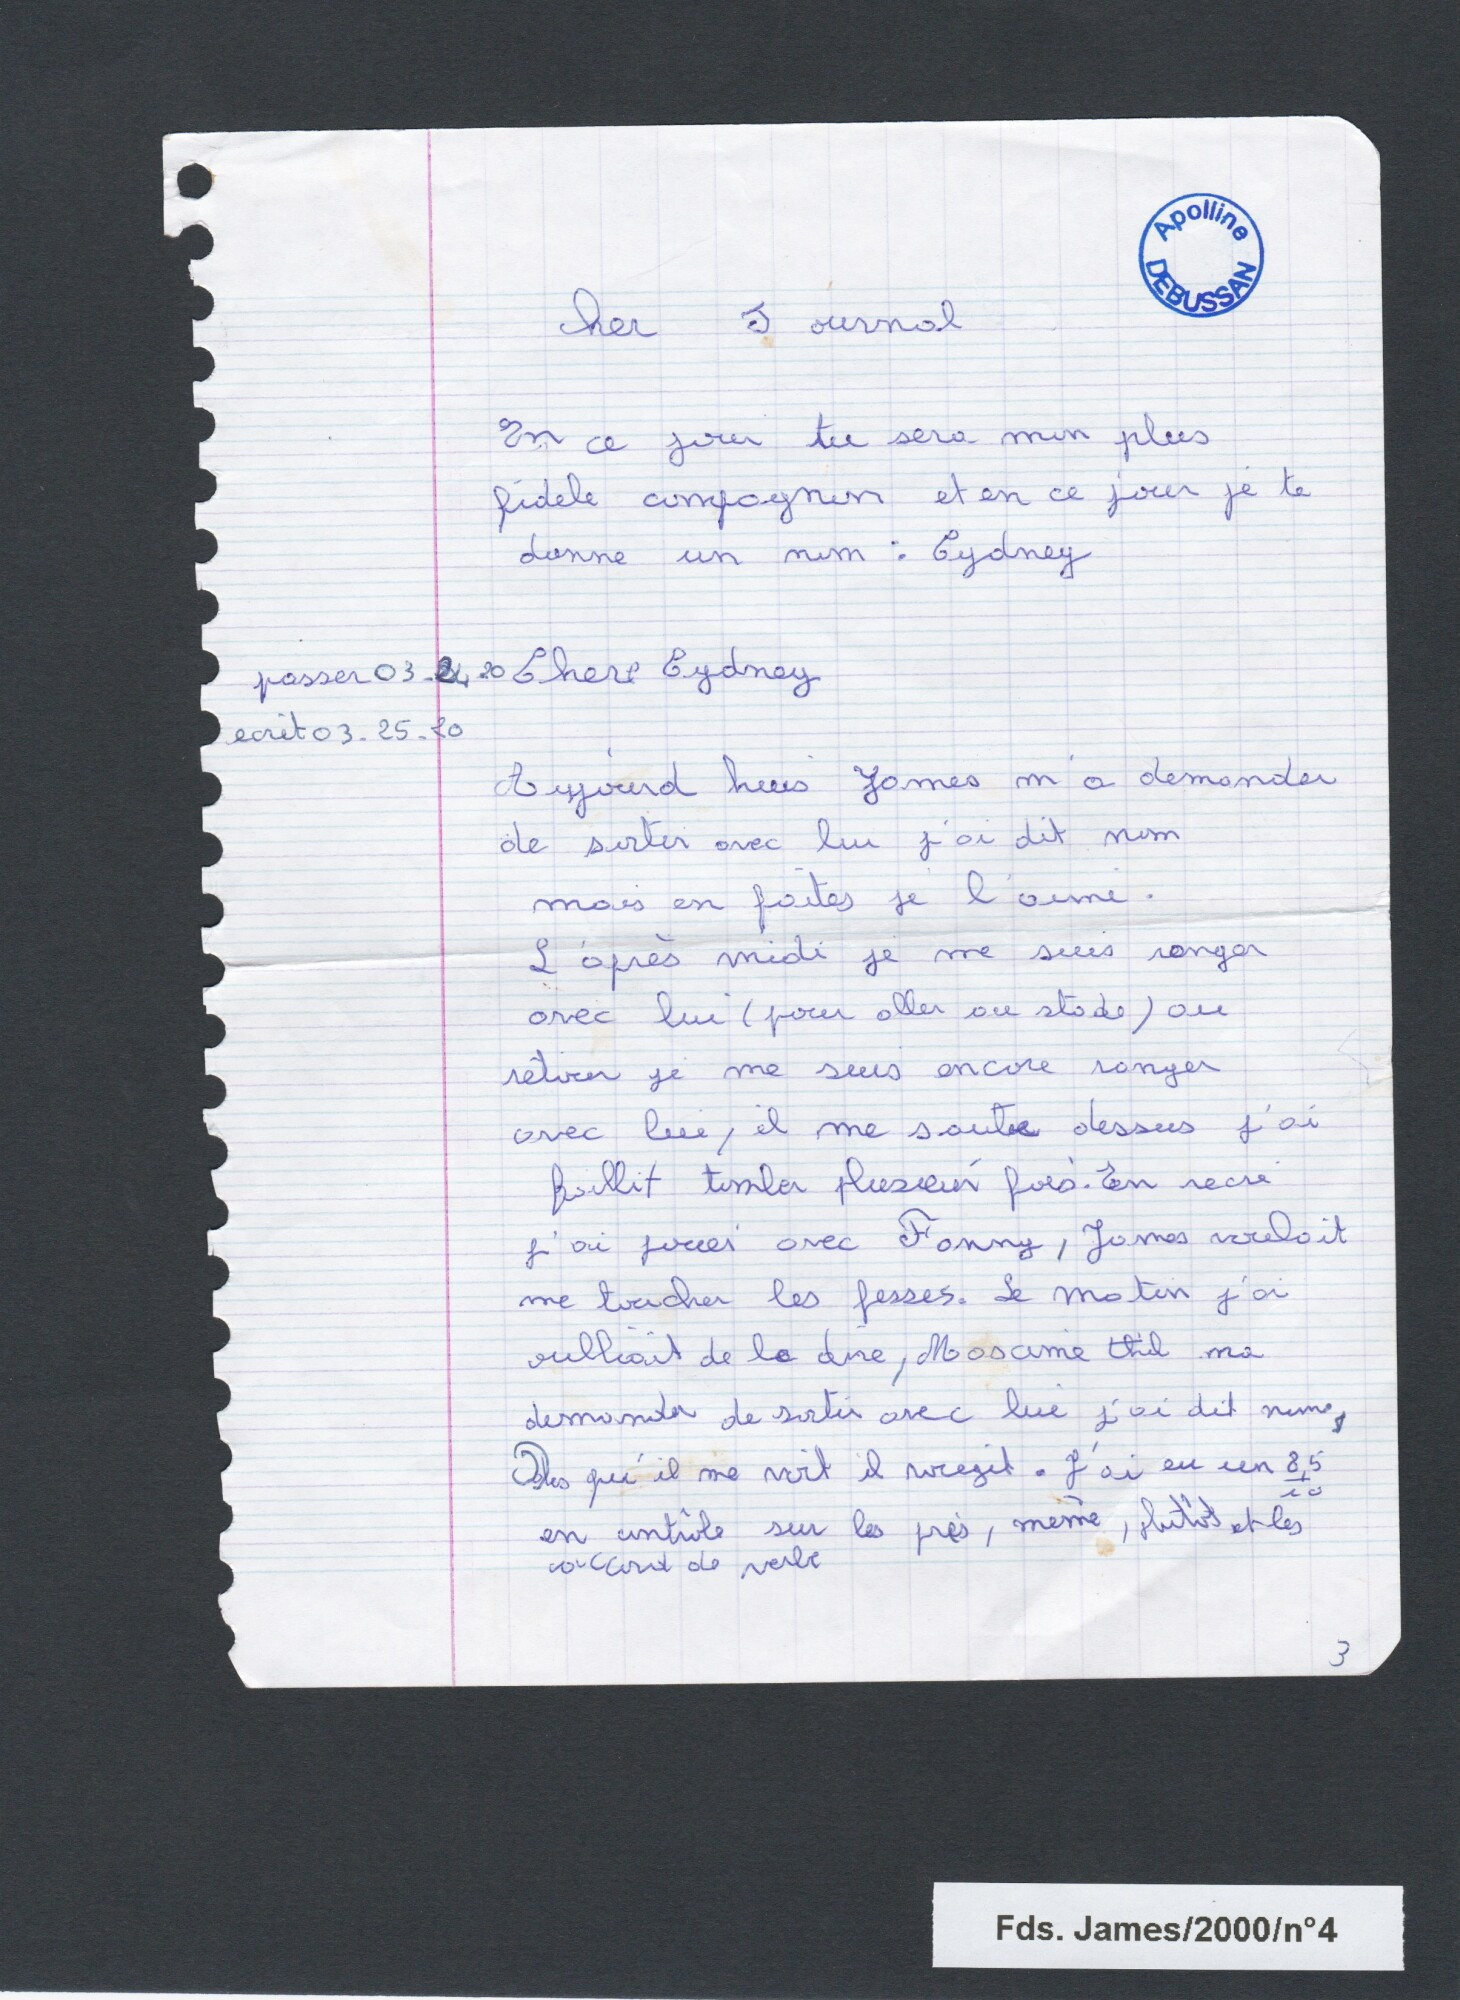 Apolline
DEBUSSAN
cher Journal
En ce jour tu sera mon plus
fidele compagnon et en ce jour je te
donne un nom : Cydney
passer 03.24.20 Chere Cydney
ecrit 03.25.20
Aujourd huis James m'a demander
de sortir avec lui j'ai dit nom
mais en faites je l'aime.
L'après midi je me suis ranger
avec lui (pour aller au stade) au
retour je me suis encore ranger
avec lui, il me saute dessus j'ai
faillit tomber plusieur fois. En recré
j'ai jouer avec Fanny, James voulait
me toucher les fesses. Le matin j'ai
oulliait de le dire, ma
demander de sortir avec lui j'ai dit nom,
Dès qu'il me voit il rougit. J'ai eu un 8,5
10
en contrôle sur les près, même, plutôt et les
accord de verbe
3
Fds. James/2000/n°4